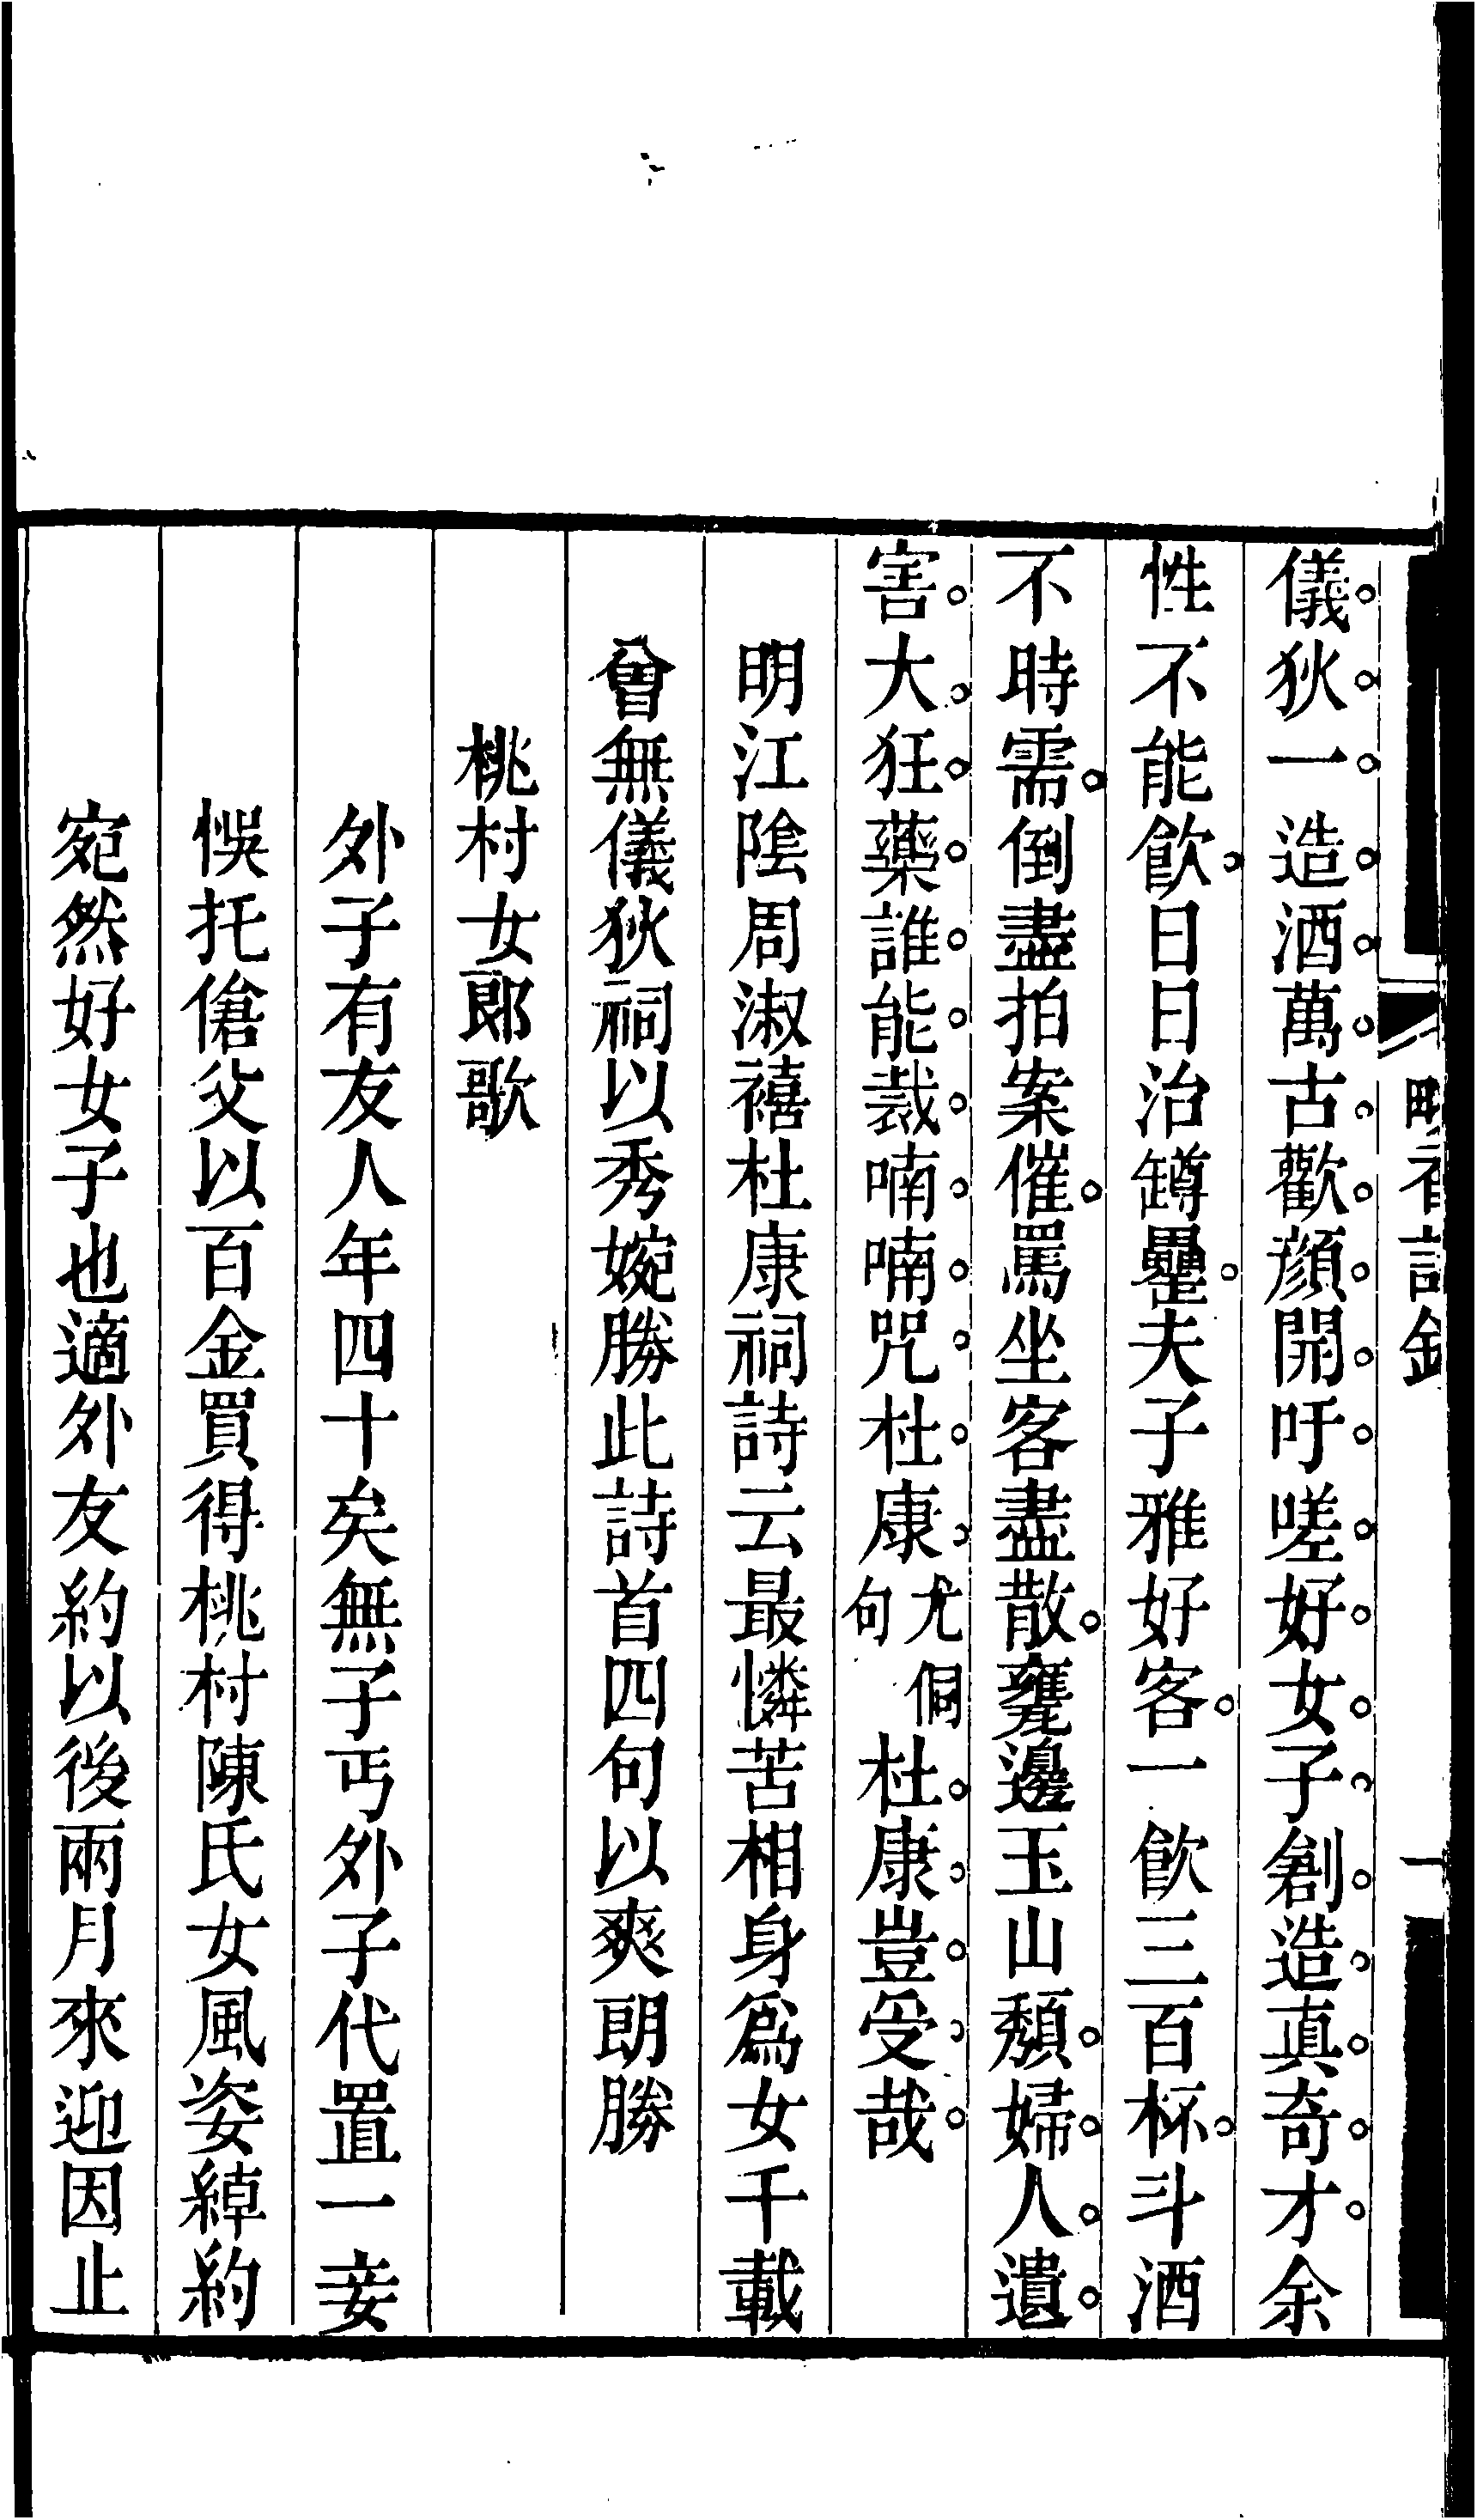 儀狄一造酒萬古歡顏開吁嗟好女子創造真奇才余
性不能飮日日治罇罍夫子雅好客一飮三百杯斗酒
不時需倒盡拍案催罵坐客盡散甕邊玉山頹婦人遺
害大狂藥誰能裁喃喃咒杜康尤侗句杜康豈受哉
明江陰周淑禧杜康祠詩云最憐苦相身爲女千載
曾無儀狄祠以秀婉勝此詩首四句以爽朗勝
桃村女郞歌
外子有友人年四十矣無子丐外子代置一妾
悞托傖父以百金買得桃村陳氏女風姿綽約
宛然好女子也適外友約以後兩月來迎因止